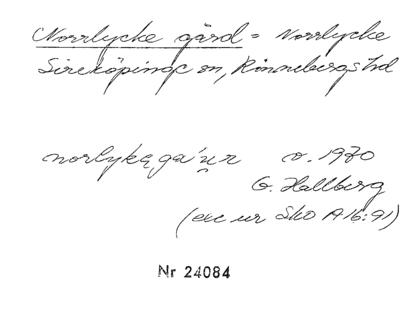 Norrlycke gård = Norrlycke
Sireköpinge sn, Rönnebergs hd
norlykę ga'ṇr v. 1970
G. Hallberg
(exc ur Sko A16:91)
Nr 24084